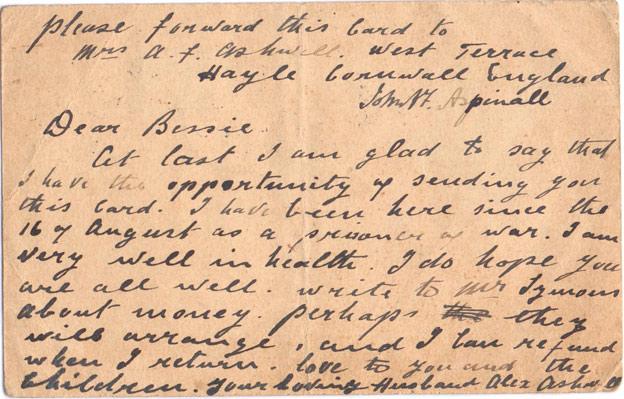 please forward this Card to
Mrs A. F. Ashwell. West Terrace
Hayle Cornwall England
John H. Aspinall
Dear Bessie.
At last I am glad to say that
I have the opportunity of sending you
this Card. I have been here since the
16 of August as a prisoner of war. I am
very well in health. I do hope you
are all well. write to Mr Symons
about money. perhaps they
will arrange, and I Can refund
when I return. love to you and the
Children. Your loving Husband Alex